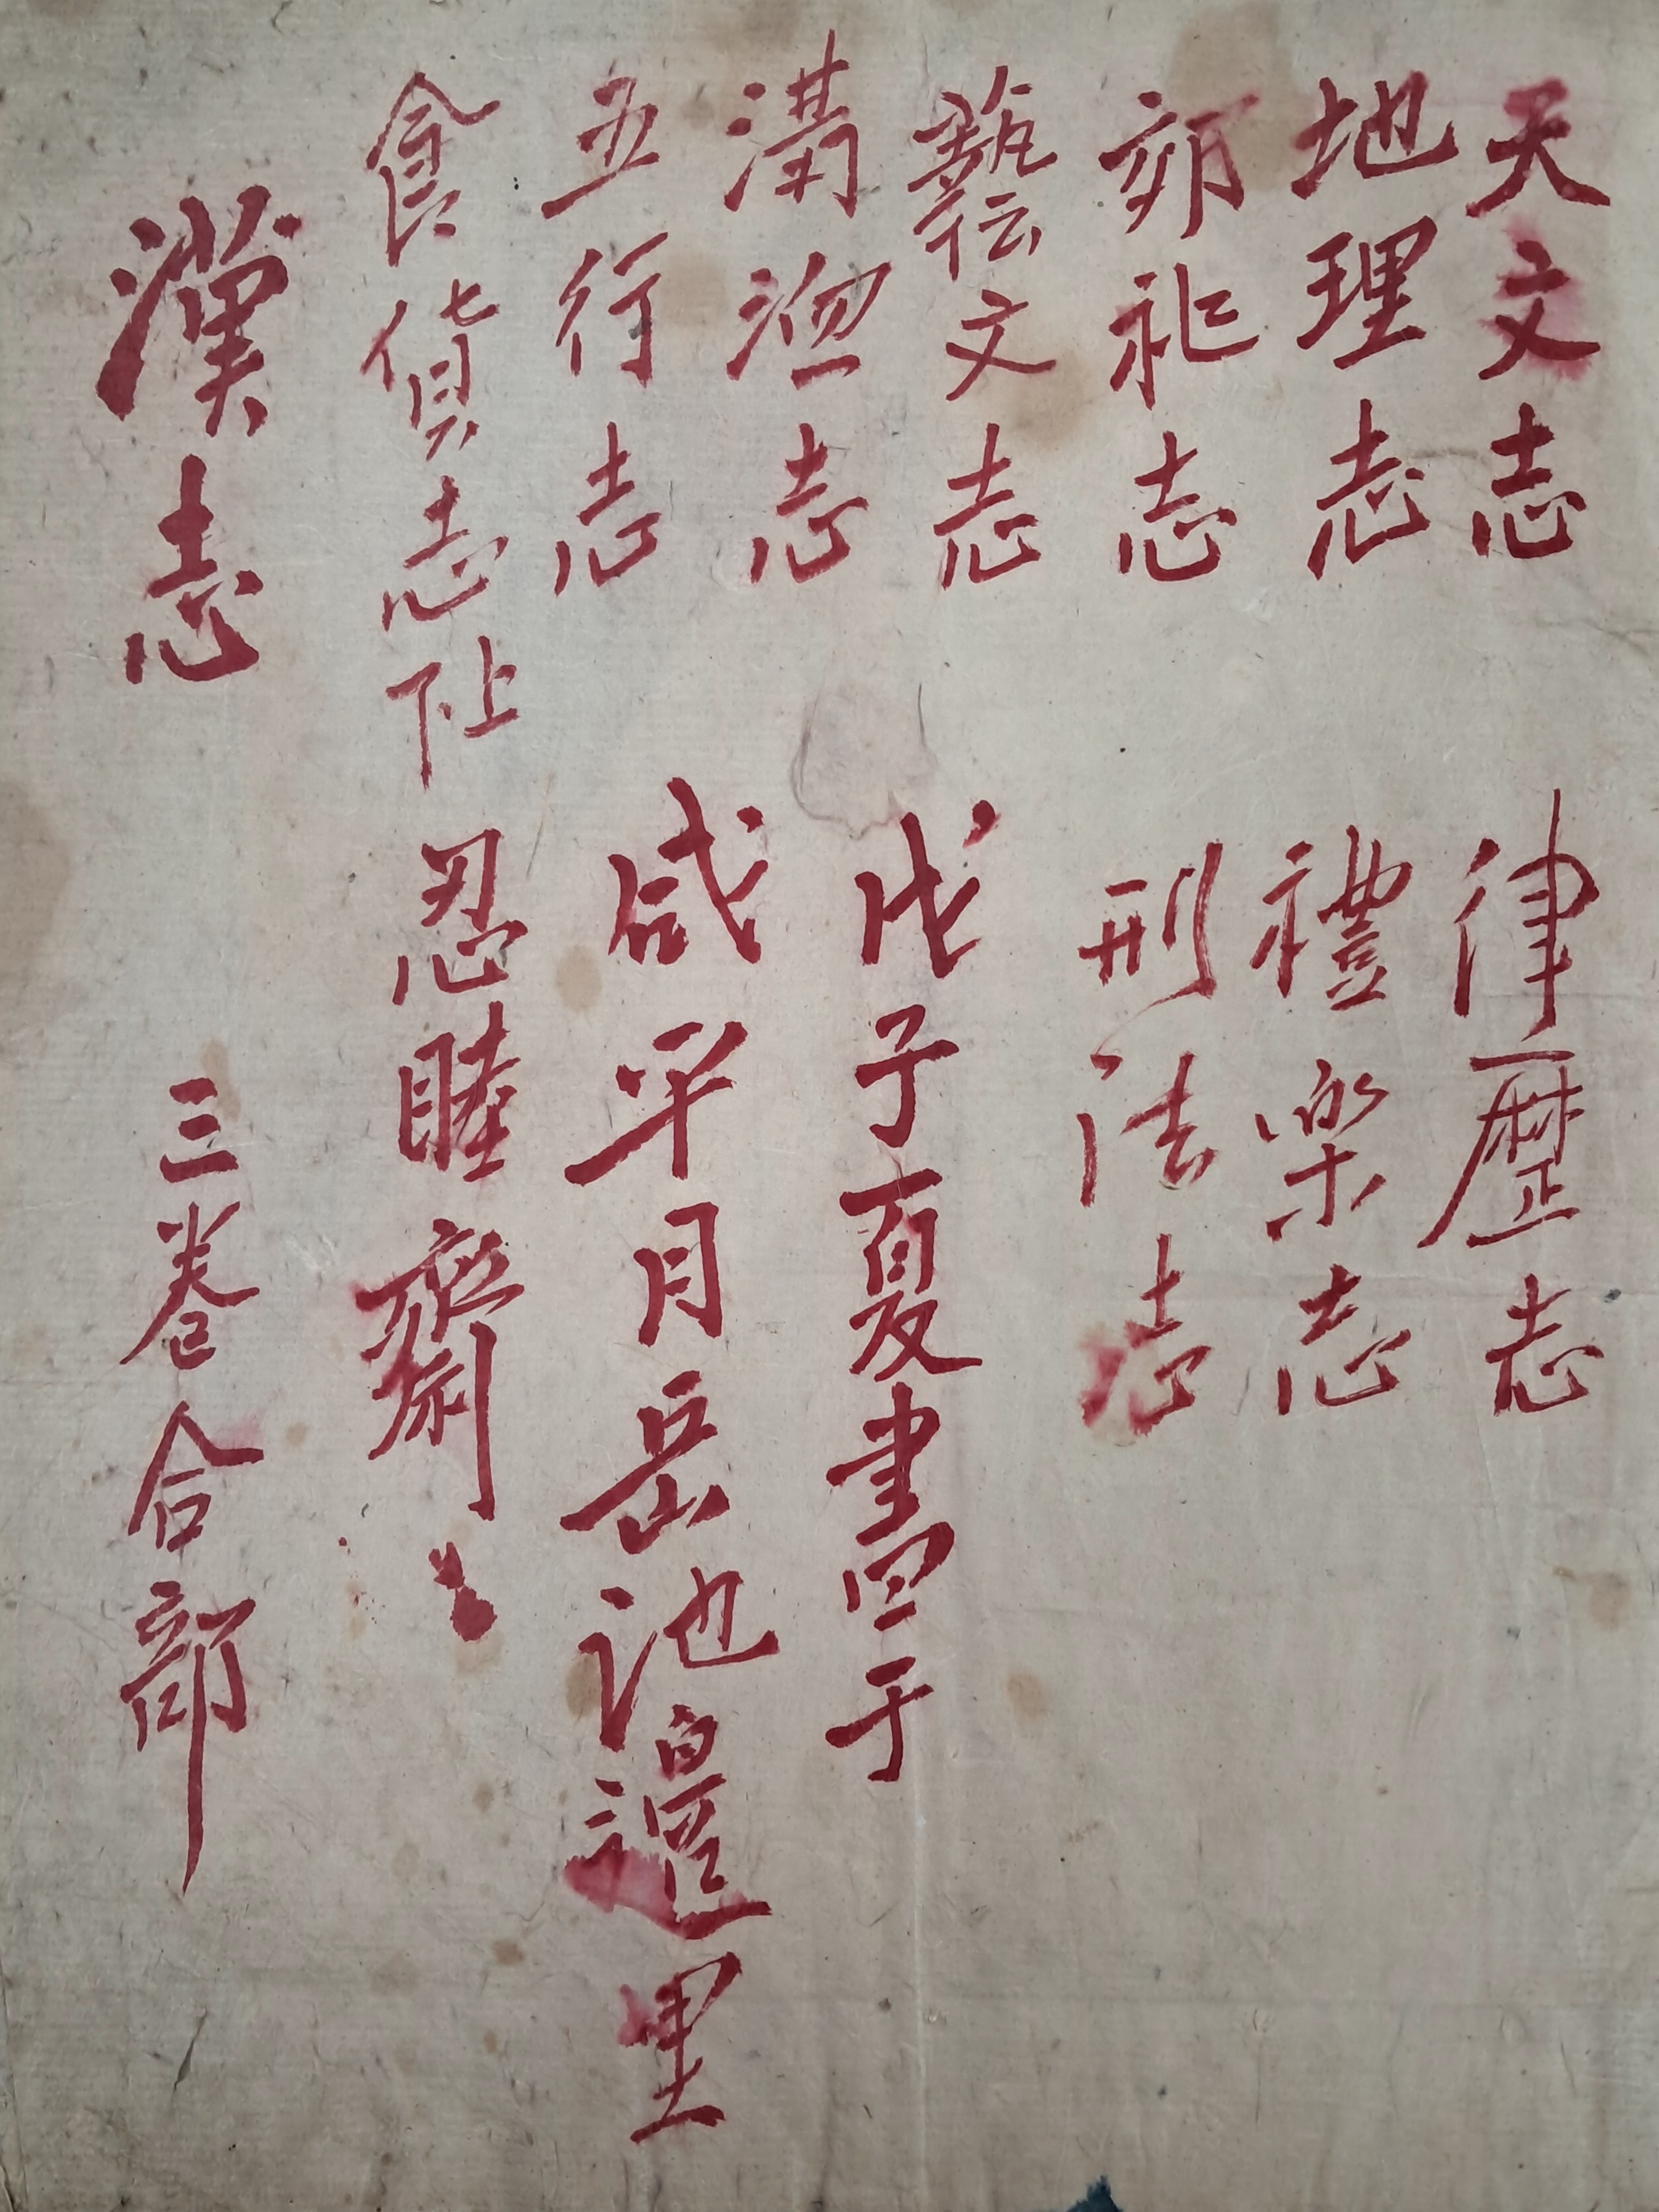 天文志
地理志
郊祀志
藝文志
溝洫志
五行志
食貨志上下
律歴志
禮楽志
刑法志
戊子夏書于
咸平月岳池邉里
忍睦齋
漢志
三卷合部